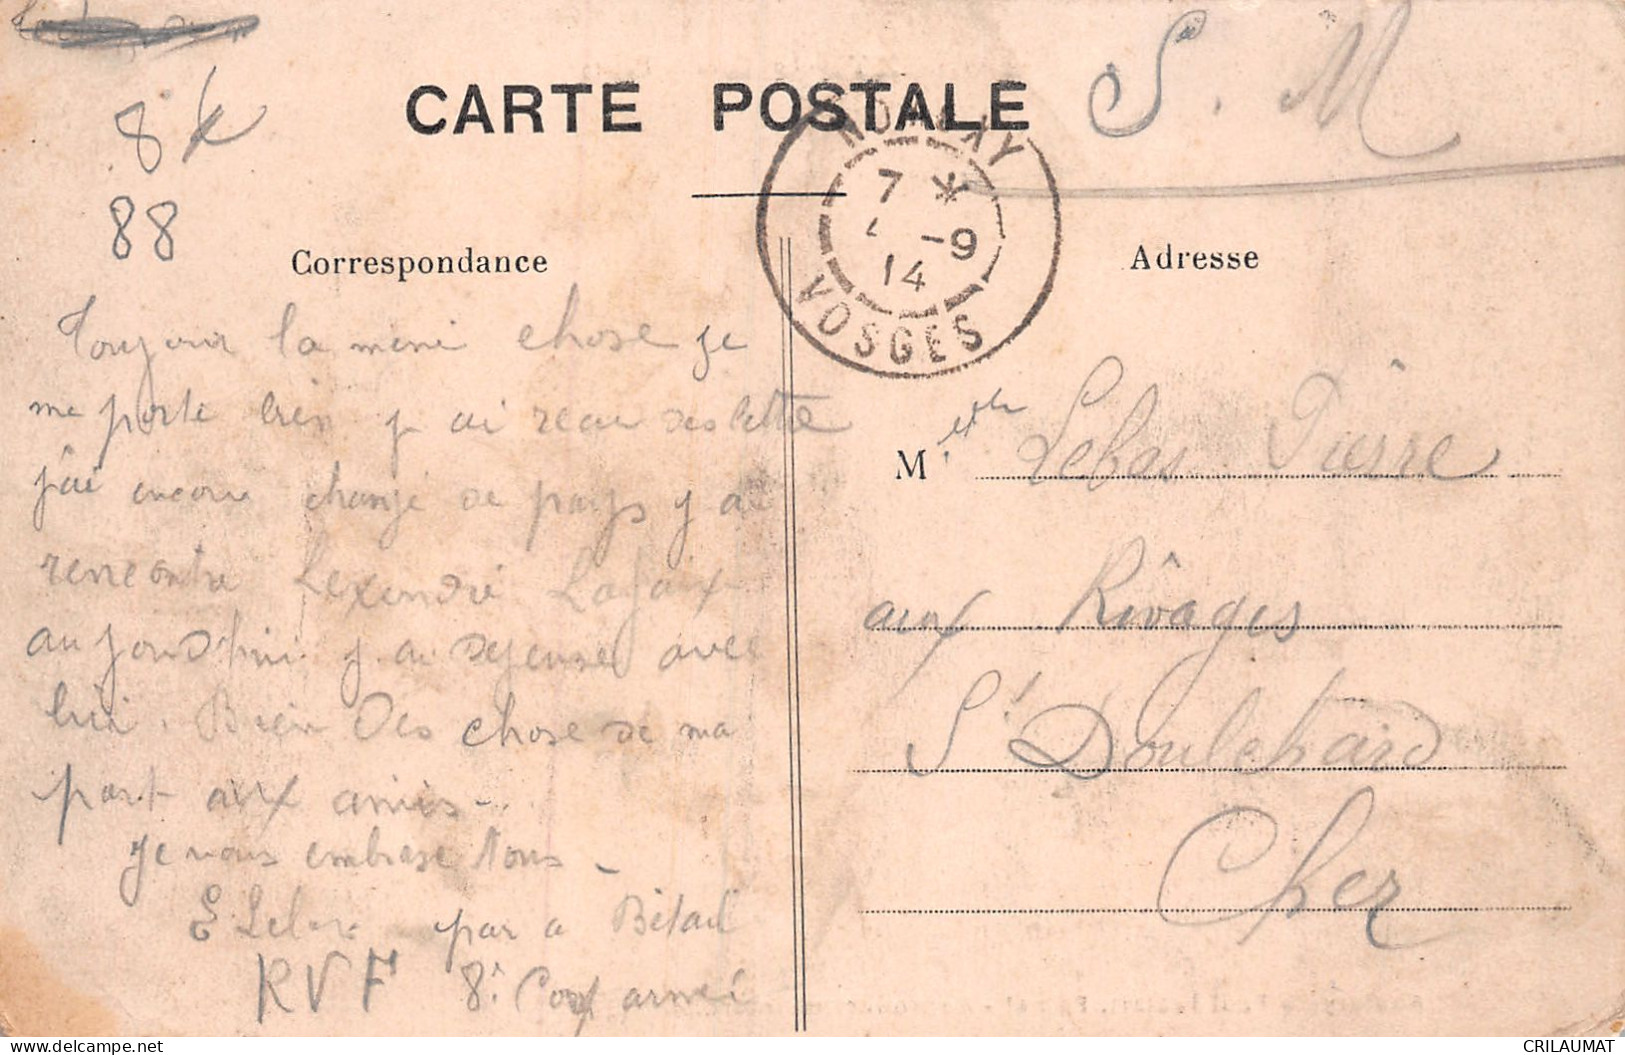 8x
88
CARTE POSTALE
S. M
NOMEXY
7 *
4 -9
14
VOSGES
Correspondance
Adresse
Toujour la meme chose je
me porte bien j ai recu des lettre
j'ai encore changé de pays j ai
rencontre Lexendre Lafaix
aujourd'hui j ai dejeuné avec
lui. Bien Des chose de ma
part aux amis -
Je vous embrase tous -
E Lebas par a Bétail
RVF 8e Corp armé
M
Lebas Pierre
aux Rivages
St Doulchard
Cher
delcampe.net
CRILAUMAT